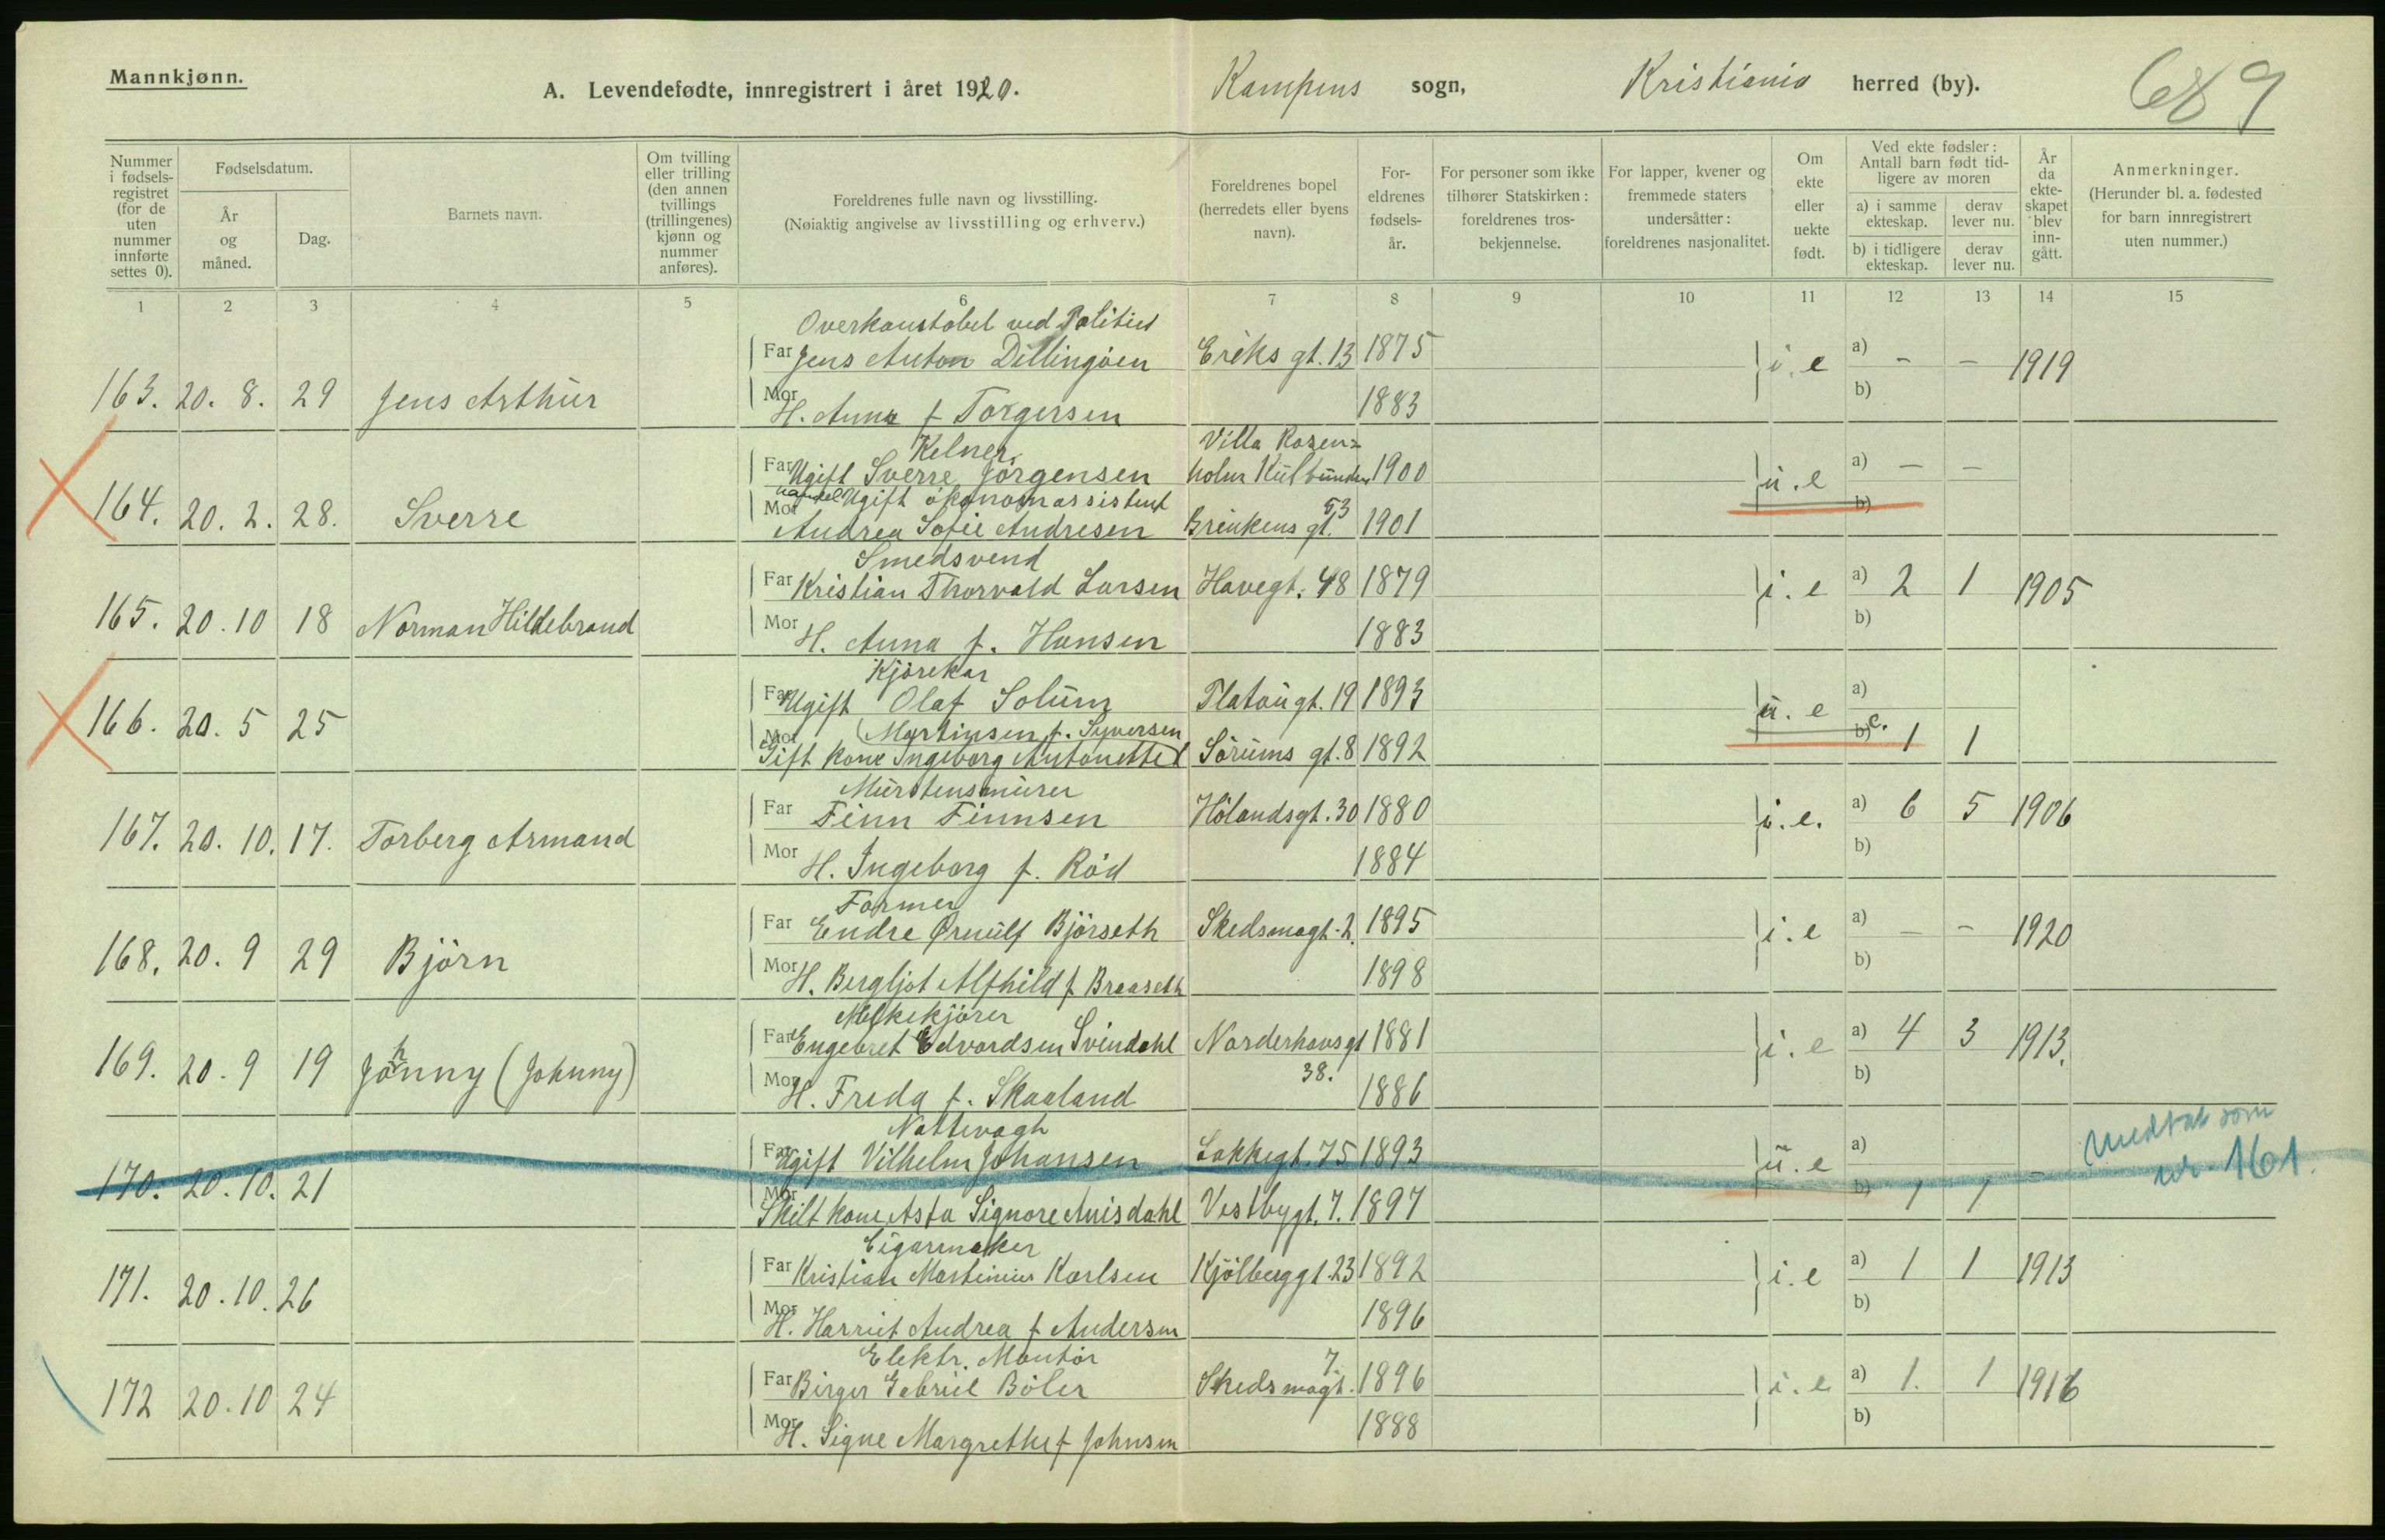 Mannkjønn.
A. Levendefødte, innregistrert i året 1920. Kampens sogn, Kristiania herred (by). 689
Nummer i fødsels-registret (for de uten nummer innførte settes 0).
Fødselsdatum.
År og måned.
Dag.
Barnets navn.
Om tvilling eller trilling (den annen tvillings (trillingenes) kjønn og nummer anføres).
Foreldrenes fulle navn og livsstilling.
(Nøiaktig angivelse av livsstilling og erhverv.)
Foreldrenes bopel (herredets eller byens navn).
For-eldrenes fødsels-år.
For personer som ikke tilhører Statskirken: foreldrenes tros-bekjennelse.
For lapper, kvener og fremmede staters undersåtter: foreldrenes nasjonalitet.
Om ekte eller uekte født.
Ved ekte fødsler: Antall barn født tid-ligere av moren
a) i samme ekteskap.
derav lever nu.
b) i tidligere ekteskap.
derav lever nu.
År da ekte-skapet blev inn-gått.
Anmerkninger.
(Herunder bl. a. fødested for barn innregistrert uten nummer.)
1 2 3 4 5 6 7 8 9 10 11 12 13 14 15
Overkonstabel ved Politiet
Far Jens Anton Dillingöen Eriks gt. 13 1875 i. e a) - - 1919
163. 20. 8. 29 Jens Arthur
Mor H. Anna f Torgersen 1883 b)
Kelner Villa Rosen=
Far Ugift Sverre Jörgensen holm Kulbunden 1900 u. e a) - -
Ugift økonomassistent
164. 20. 2. 28. Sverre
Mor Andrea Sofie Andresen Brinkens gt. 53 1901 b)
Smedsvend
Far Kristian Thorvald Larsen Havegt. 48 1879 i. e a) 2 1 1905
165. 20. 10 18 Norman Hildebrand
Mor H. Anna f. Hansen 1883 b)
Kjörekar
Far Ugift Olaf Solum Platöugt. 19 1893 u. e a)
166. 20. 5 25
(Martinsen f. Syversen
Mor Gift kone Ingeborg Antonette Sörums gt. 8 1892 b) e. 1 1
Murstensmurer
Far Finn Finnsen Hölandsgt. 30 1880 i. e. a) 6 5 1906
167. 20. 10. 17. Torberg Armand
Mor H. Ingeborg f. Röd 1884 b)
Former
Far Endre Ørnulf Björseth Skedsmogt. 2. 1895 i. e a) - - 1920
168. 20. 9 29 Björn
Mor H. Bergljot Alfhild f. Braaseth 1898 b)
Melkekjörer
Far Engebret Edvardsen Svindahl Norderhovsgt 1881 i. e a) 4 3 1913.
169. 20. 9 19 Johnny (Johnny)
Mor H. Freda f. Skaaland 38. 1886 b)
Nattevagt
Far Ugift Vilhelm Johansen Lakkegt. 75 1893 u. e a) Medtat som
170. 20. 10. 21 nr. 161.
Mor Skilt kone Asta Signore Anisdahl Vestbygt. 7. 1897 b) 1 1 -
Cigarmaker
Far Kristian Martinius Karlsen Kjölberggt. 23 1892 i. e a) 1 1 1913
171. 20. 10. 26
Mor H. Harriet Andrea f Andersen 1896 b)
Elektr. Montör
Far Birger Gabriel Böler Skedsmogt. 7. 1896 i. e a) 1. 1 1916
172 20. 10 24
Mor H. Signe Margrethe f Johnsen 1888 b)